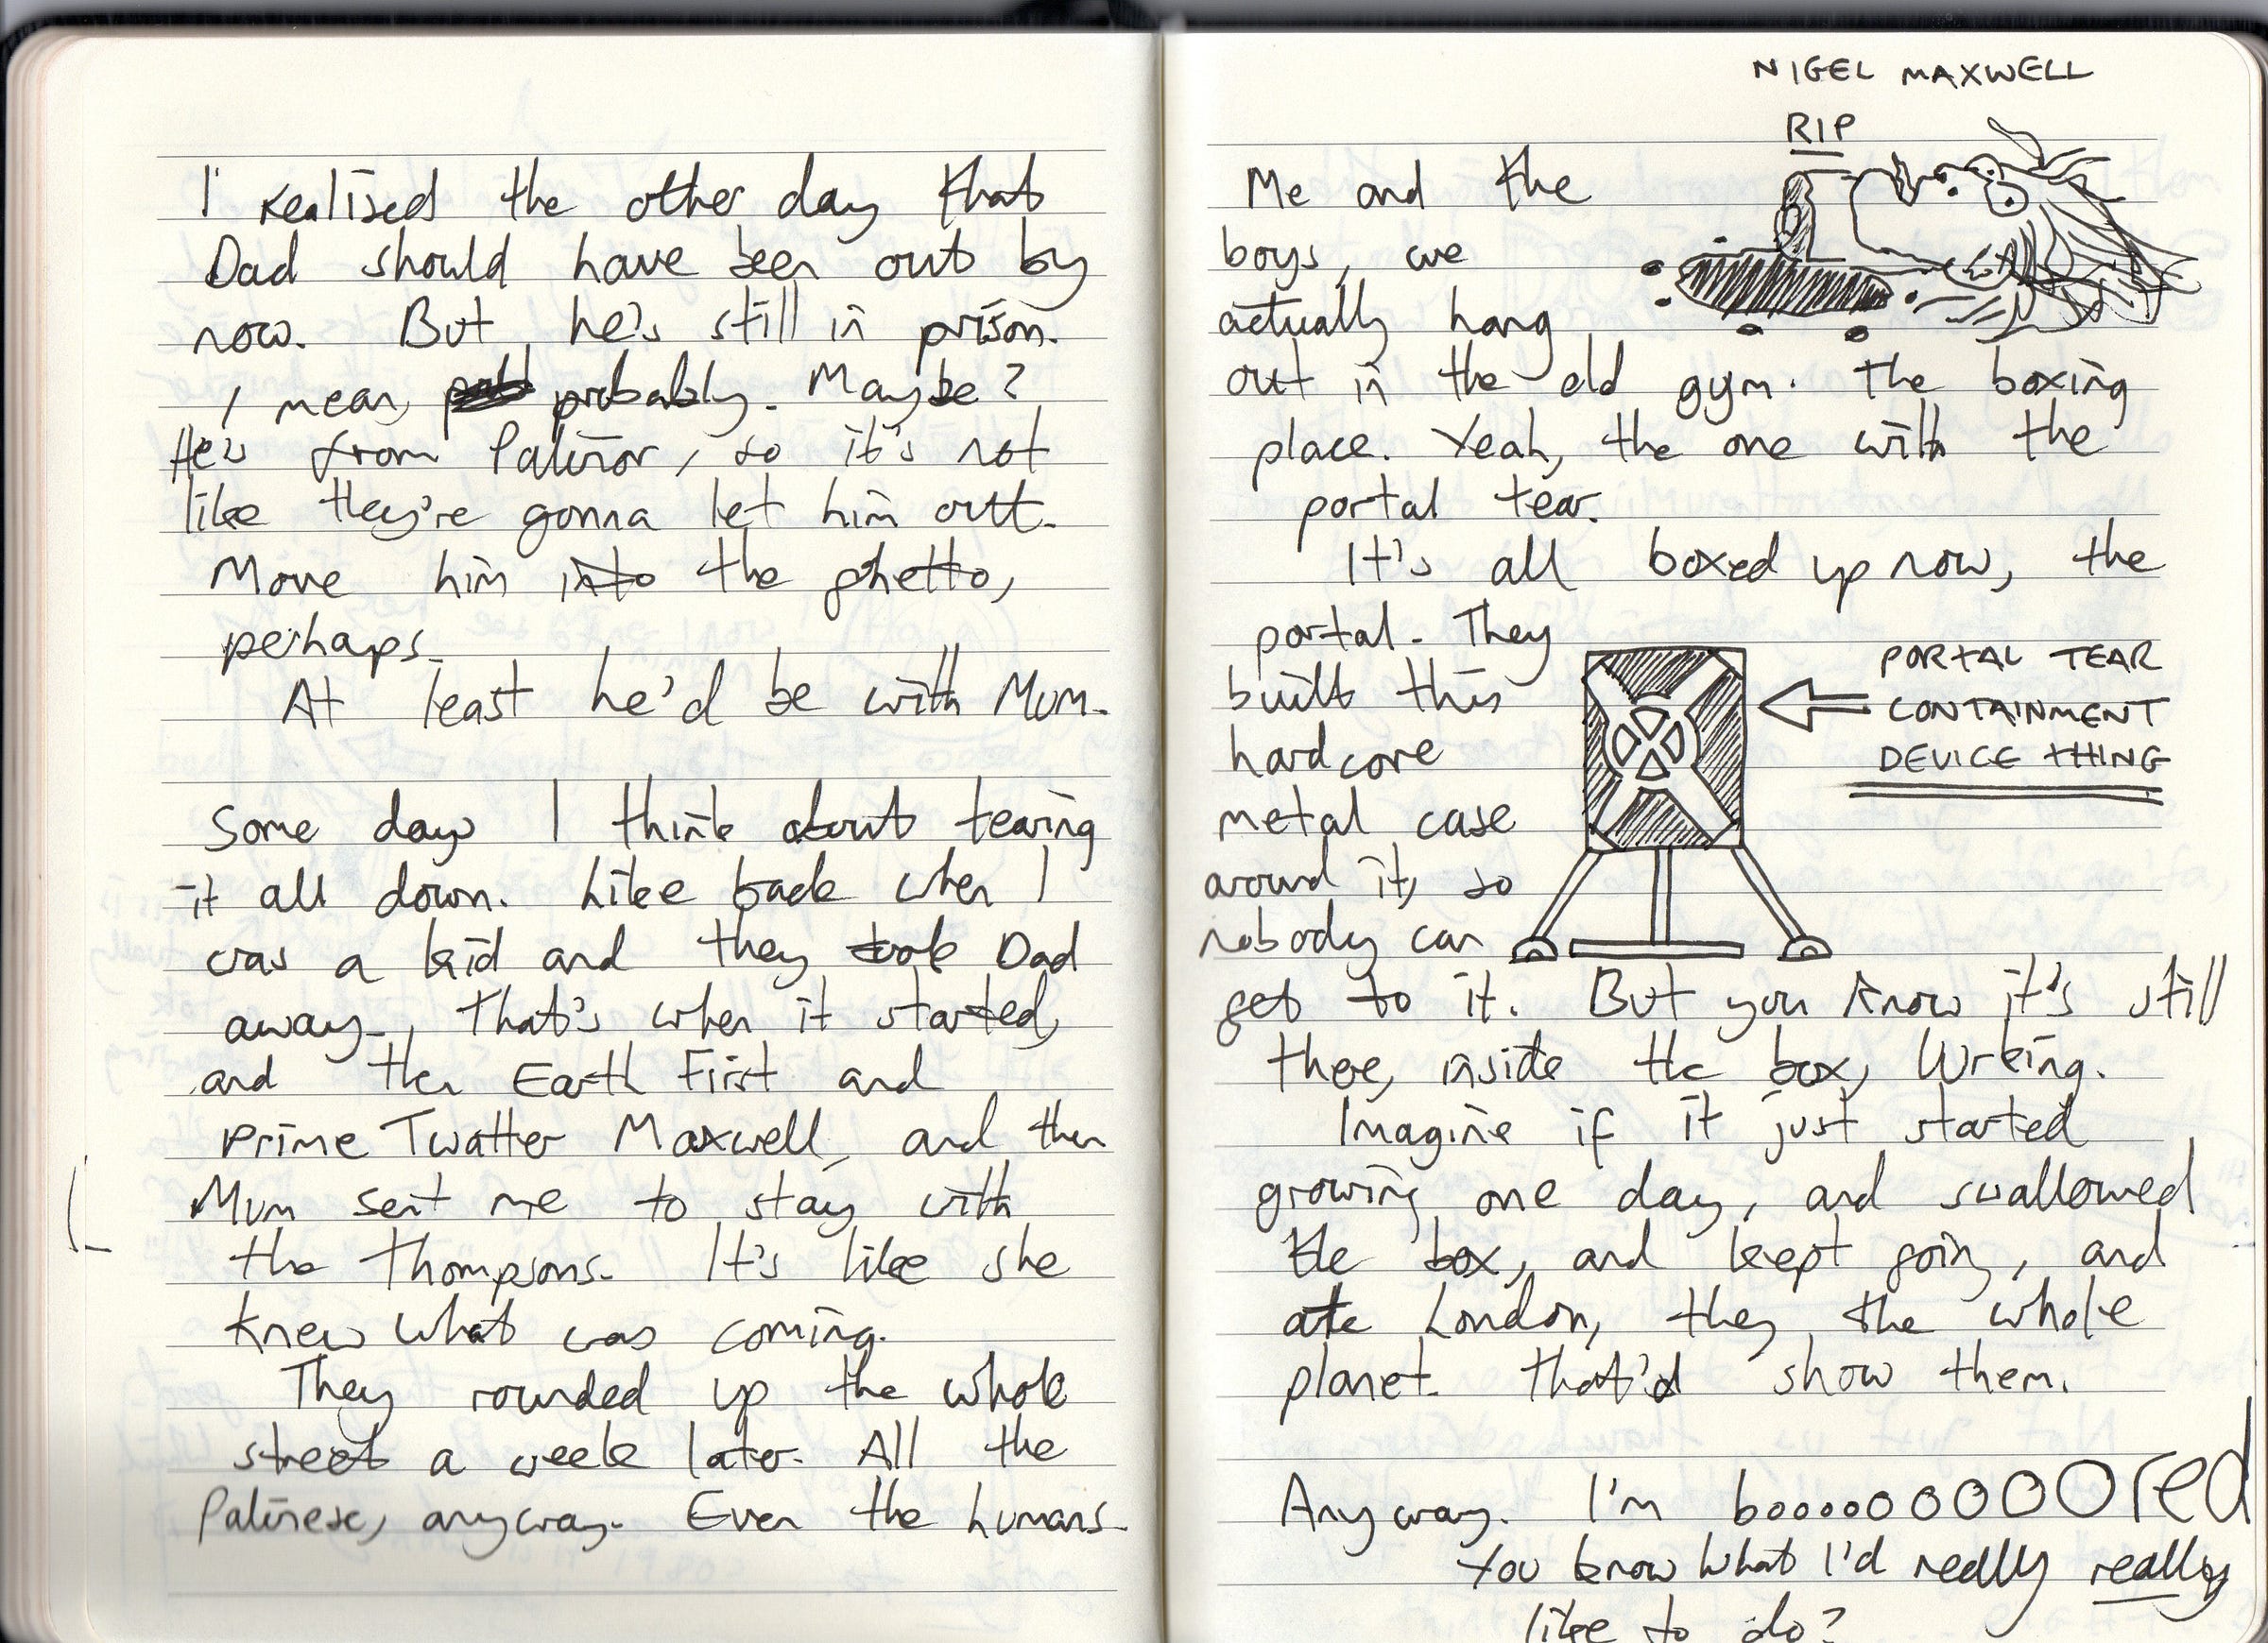 I realised the other day that
Dad should have been out by
now. But he's still in prison.
I mean, probably. Maybe?
He's from Palinor, so it's not
like they're gonna let him out.
Move him into the ghetto,
perhaps.
At least he'd be with Mum.
Some days I think about tearing
it all down. Like back when I
was a kid and they took Dad
away. That's when it started,
and then Earth First and
Prime Twatter Maxwell, and then
Mum sent me to stay with
the Thompsons. It's like she
knew what was coming.
They rounded up the whole
street a week later. All the
Palinese, anyway. Even the humans.
NIGEL MAXWELL
RIP
Me and the
boys, we
actually hang
out in the old gym. The boxing
place. Yeah, the one with the
portal tear.
It's all boxed up now, the
portal. They
built this
hardcore
metal case
around it, so
nobody can
PORTAL TEAR
CONTAINMENT
DEVICE THING
get to it. But you know it's still
there, inside the box, lurking.
Imagine if it just started
growing one day, and swallowed
the box, and kept going, and
ate London, they the whole
planet. That'd show them.
Anyway. I'm boooooooooored
You know what I'd really really
like to do?